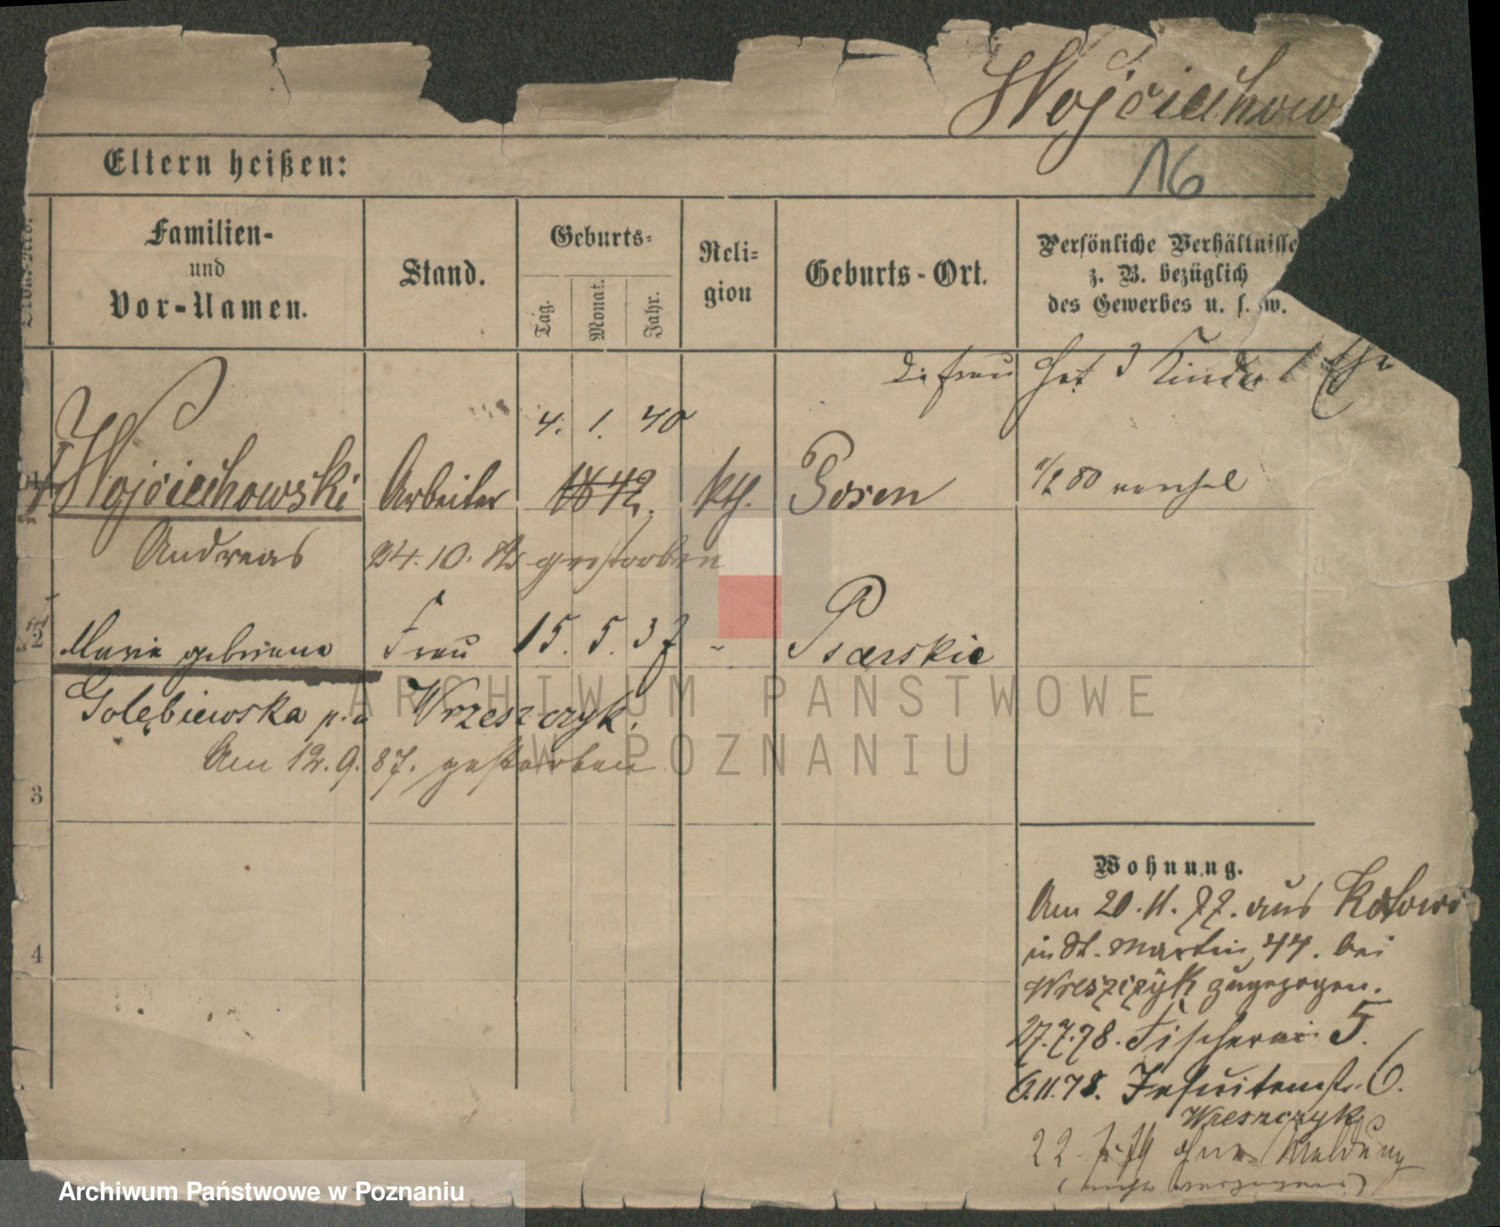 Wojciechow
16
Eltern heißen:
Familien-
und
Vor-Namen.
Stand.
Geburts-
Tag.
Monat.
Jahr.
Reli-
gion
Geburts-Ort.
Persönliche Verhältnisse
z. B. bezüglich
des Gewerbes u. s. w.
Die Frau hat 3 Kinder 1 Ehe
4. 1. 40
Wojciechowski Arbeiter 1842. kth. Posen
80
Andreas 24. 10. gestorben
2
Marie geborene Frau 15. 5. 37 - Psarskie
Golębiewska Wrzeszczyk.
Am 12. 9. 87. gestorben
3
4
Wohnung.
Am 20. 11. 77. aus Kotowo
in St. Martin 44. bei
Wreszczyk zugezogen.
27.7.78. Fischerei 5.
6.11.78. Jesuitenstr. 6.
Wreszczyk
22 7. 79 ohne Meldung
ARCHIWUM PAŃSTWOWE
W POZNANIU
Archiwum Państwowe w Poznaniu